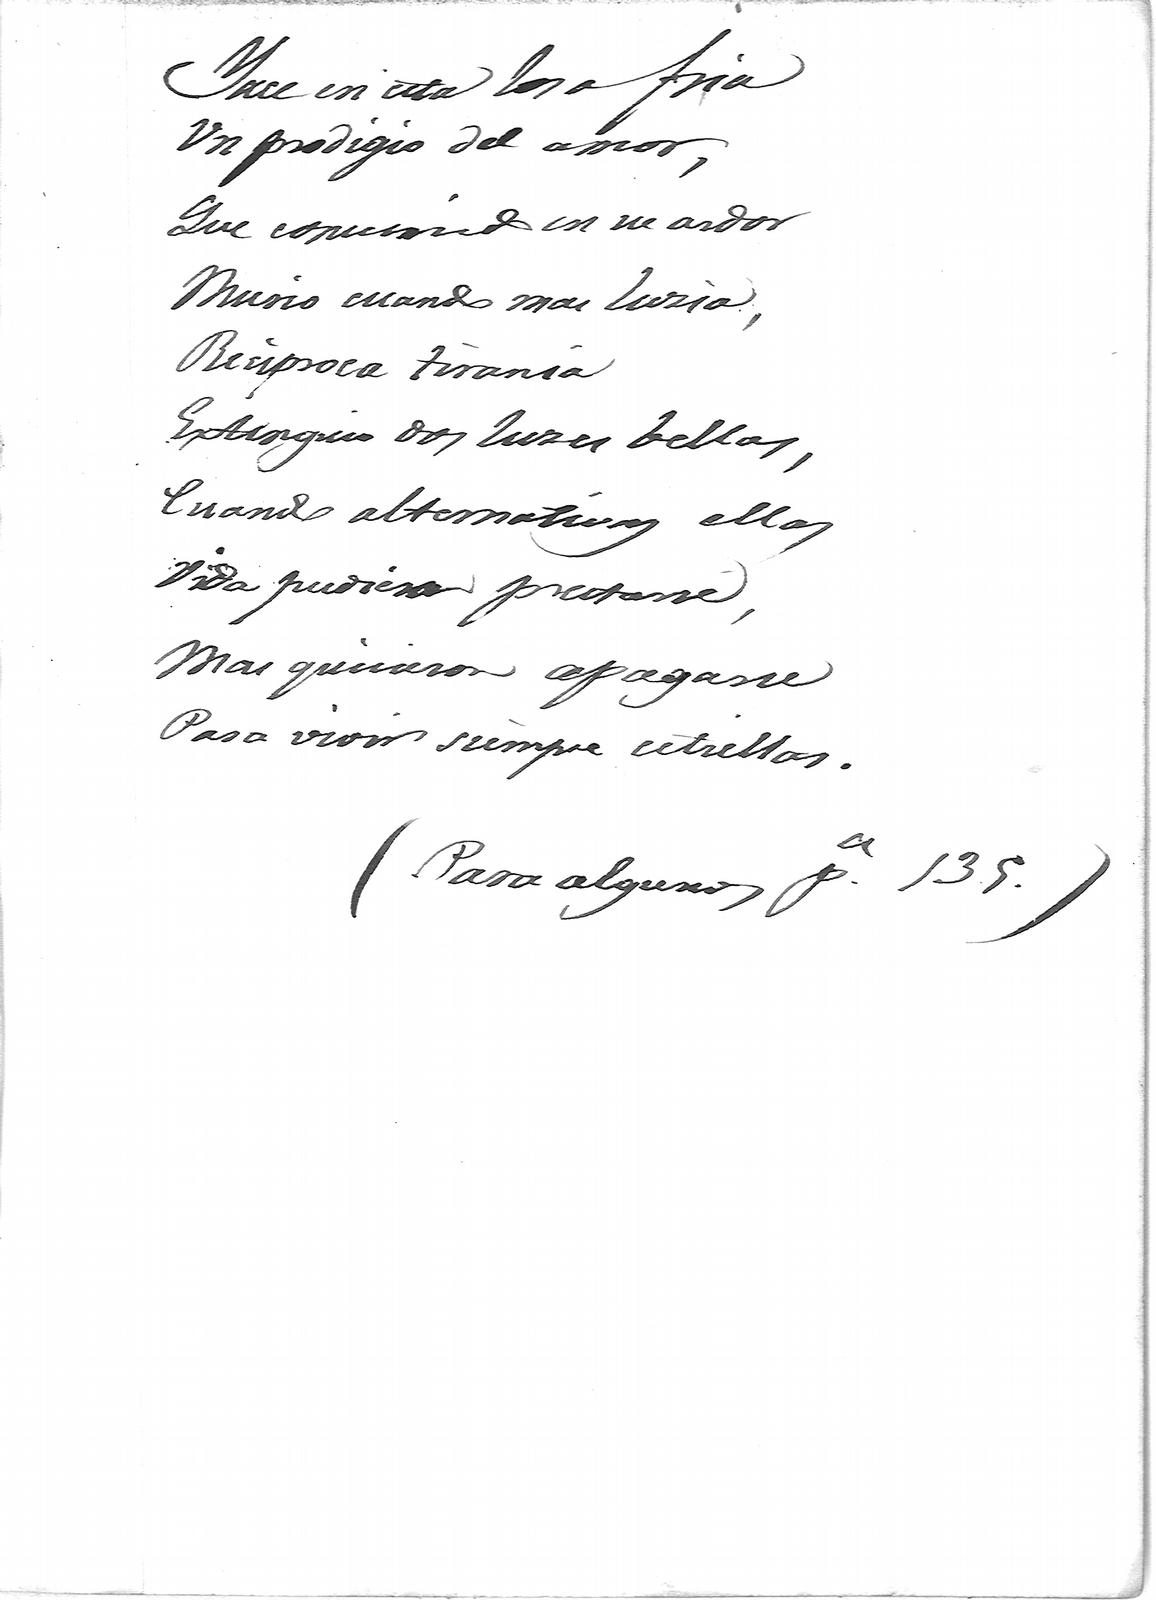 Yace en esta losa fria
Un prodigio del amor,
Que consumido en su ardor
Murio cuando mas luzia,
Reciproca tirania
Extinguio dos luzes bellas,
Cuando alternativas ellas
Vida pudieron prestarse,
Mas quisieron apagarse
Para vivir siempre estrellas.
(Para algunos p.ª 135.)